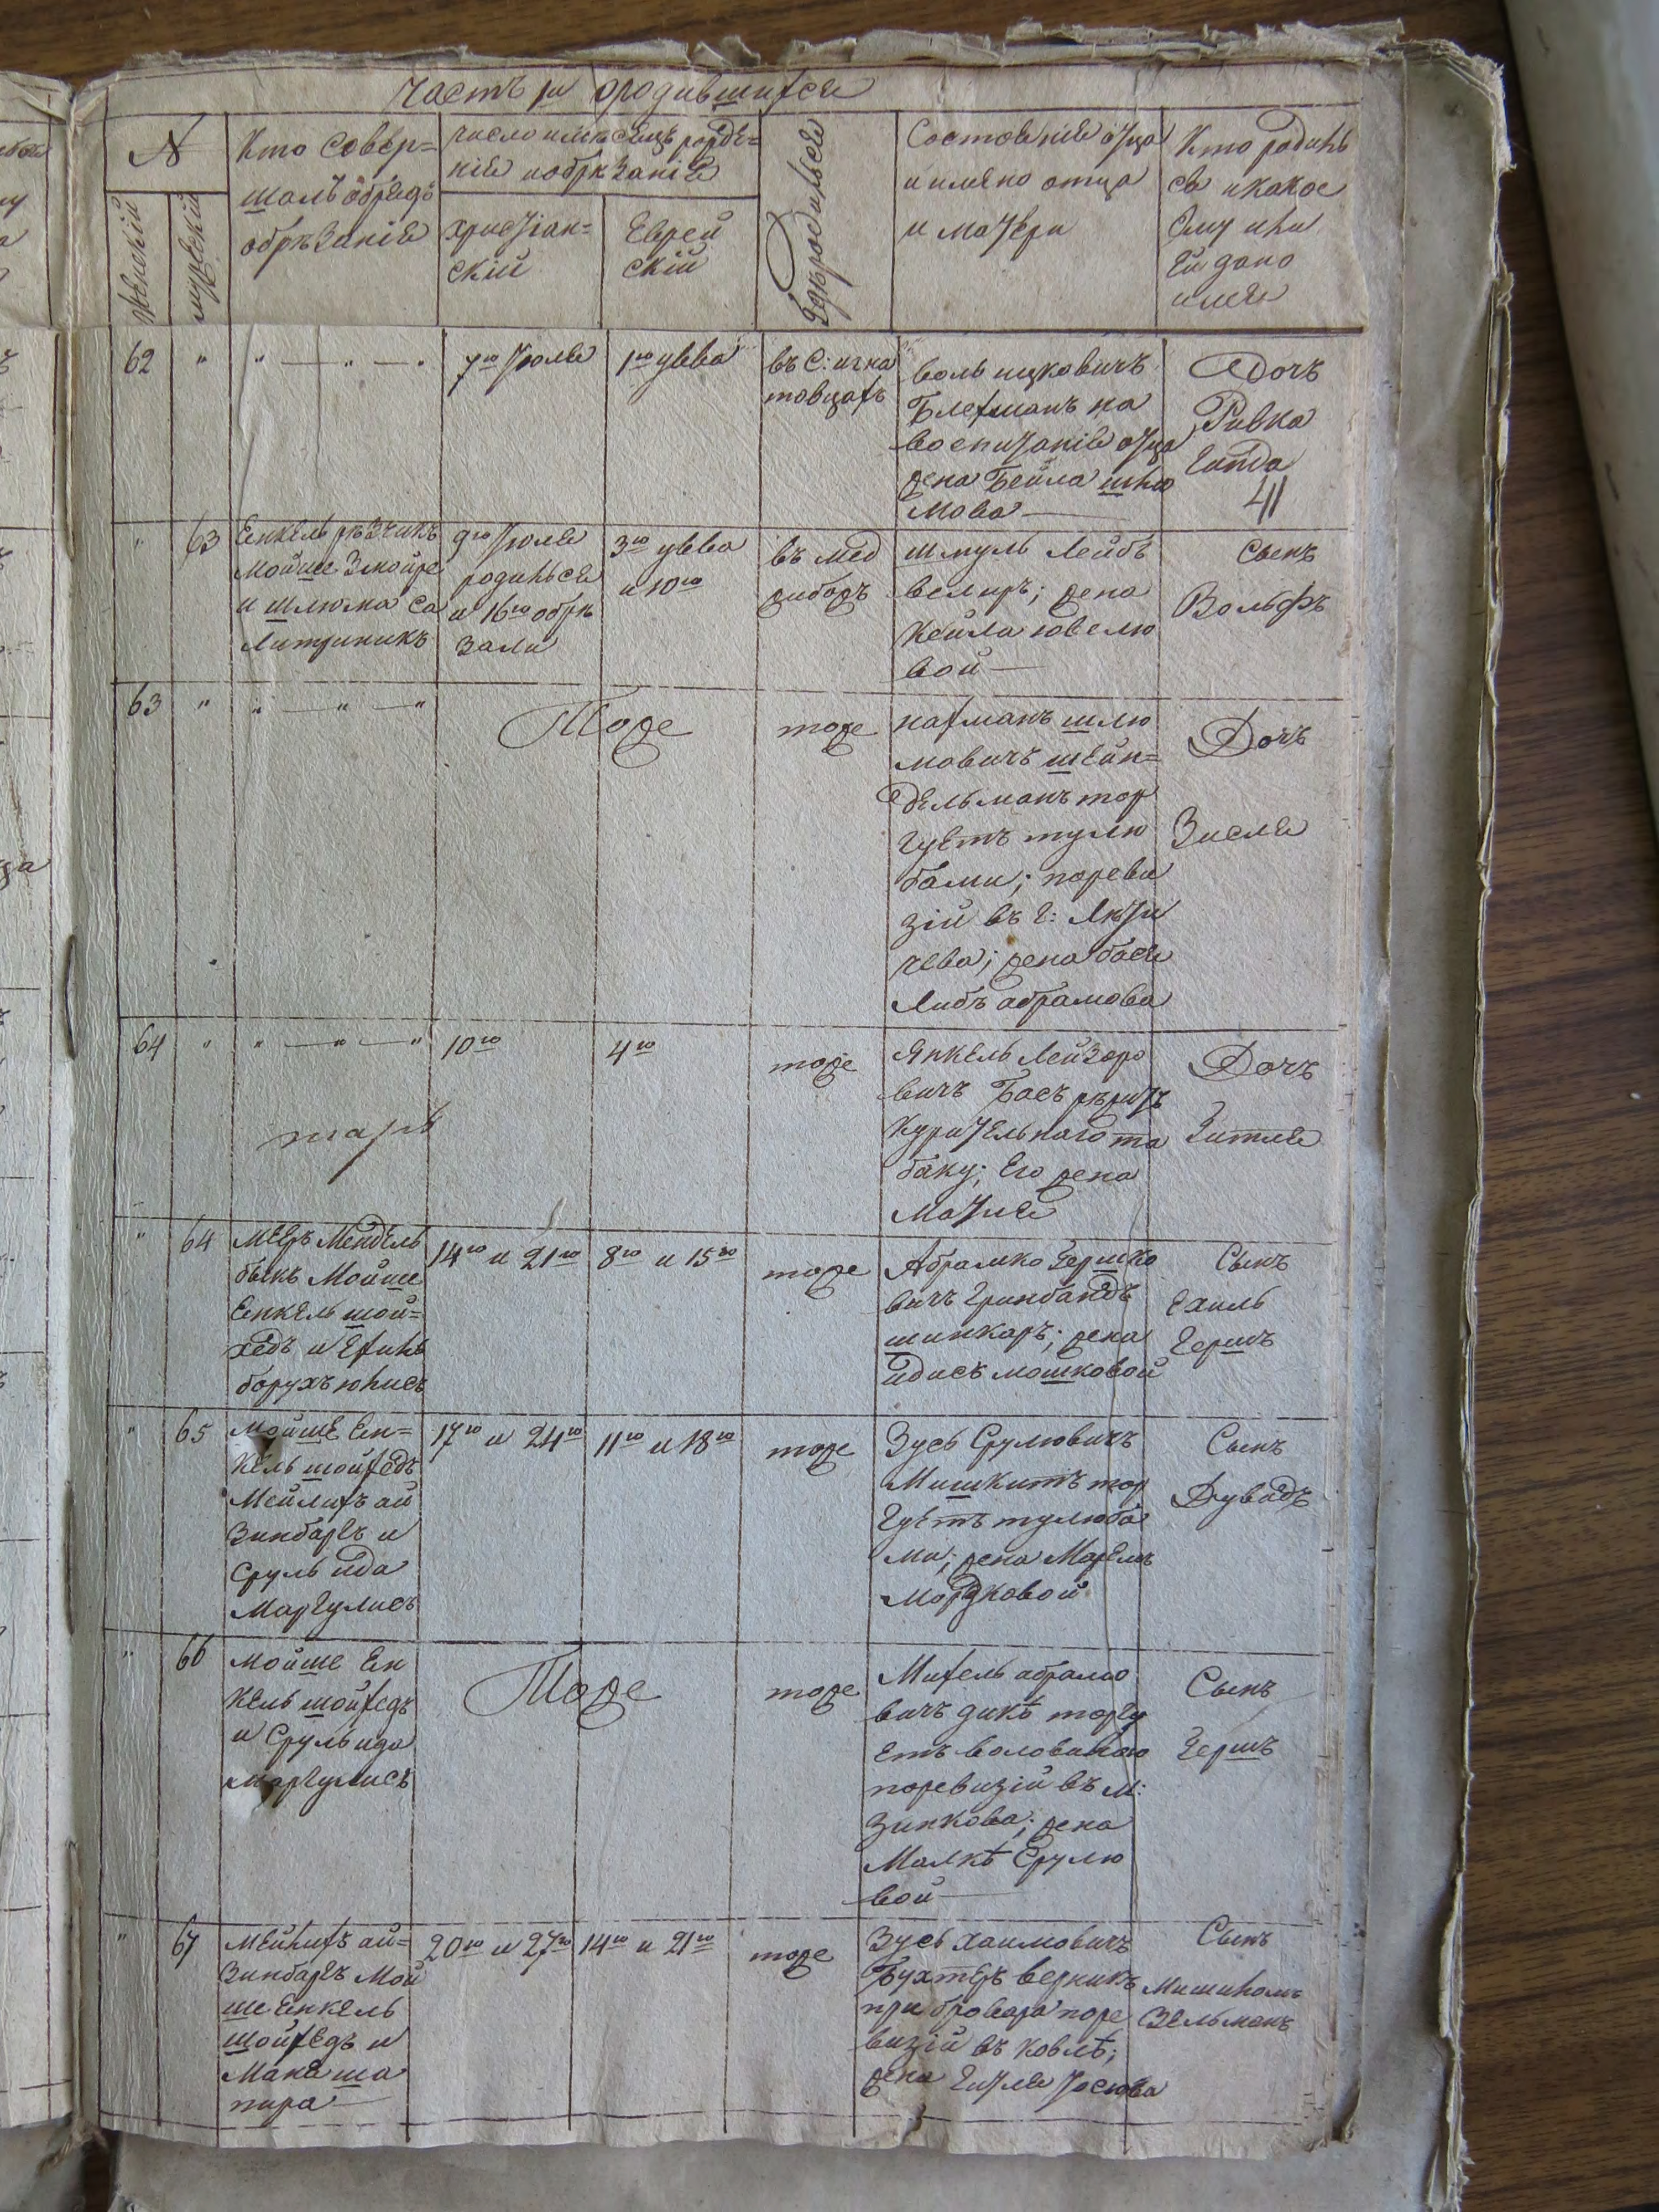 Часть 1я ородившихся
№
женскій
мужескій
Кто совер=
шалъ обрядъ
обрѣзанія
число имѣсяцъ рожде=
нія иобрѣзанія
христіан=
скій
Еврей
скій
Гдѣ родился
Состояніе отца
и имяно отца
и матери
Кто родилъ
ся икакое
Ему или
Ей дано
имя
62 " " — " — " 7го Іюля 1го увва въ С: игна
товцахъ
воль ицковичъ
Блехманъ на
воспитаніе отца
жена Бейла шлю
мова —
Дочь
Ривка
Гитда
" 63
Енкель рѣзчикъ
Мойше Змойре
и шлюма са
литрникъ
9го Іюля
родился
и 16го обрѣ
зали
3го увва
и 10го
въ мед
жибожъ
шмуль Лейбъ
велиръ; жена
Кейла ювелю
вой —
Сынъ
Вольфъ
63 " " — " — "
Тоже
тоже
нахманъ шлю
мовичъ шейн=
дельманъ тор
гуетъ тулю
бами; поревы
зій въ г: Лѣти
чева; жена бася
Либъ абрамова
Дочь
Зисля
64 " " — " — " 10го 4го тоже
Янкель Лейзоро
вичъ Басъ рѣжитъ
Курительнаго та
баку; Его жена
Матля
Дочь
Гитля
" 64
Мееръ Мендель
быкъ Мойше
Енкель шой=
хедъ и Ехиль
борухъ юлисъ
14го и 21го 8го и 15го тоже
Абрамко Гершко
вичъ Гринбандъ
шинкаръ; жена
идись мошковой
Сынъ
Ехиль
Гершъ
" 65
Мойше Ен=
кель шойхедъ
Мейлихъ ай
зинбаргъ и
Сруль ида
Маргулисъ
17го и 24го 11го и 18го тоже
Зусь Срулювичъ
Мишкитъ тор
гуетъ тулюба
ми; жена Маремъ
Мордковой
Сынъ
Дувадъ
" 66
Мойше Ен
кель шойхедъ
и Сруль ида
маргулисъ
Тоже
тоже
Михель абрамо
вичъ дикъ торгу
етъ воловиною
поревизій въ м:
Зинкова; жена
Малкѣ Срулю
вой —
Сынъ
Гершъ
" 67
Мейлихъ ай=
зинбаргъ Мой
ше Енкель
шойхедъ и
Мане ша
пира —
20го и 27го 14го и 21го тоже
Зусь Хаимовичъ
Бухтеръ верникъ
при бровара поре
визій въ Ковлѣ;
жена Гитля Іосюва
Сынъ
Мишиломъ
Зельманъ